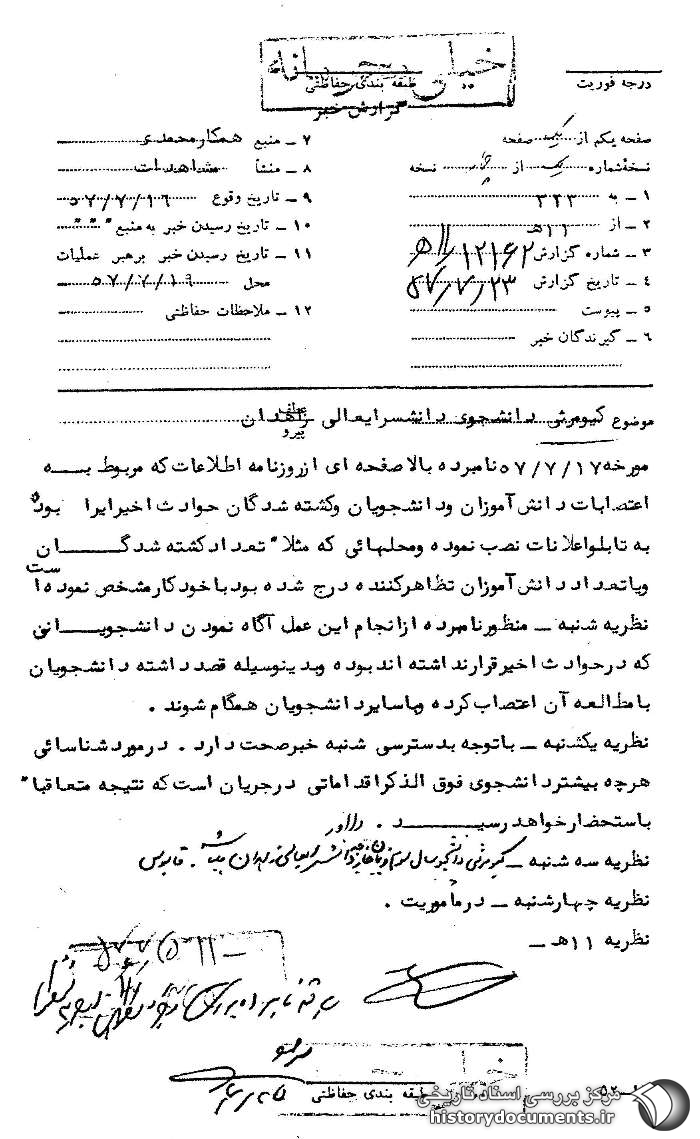 خیلی محرمانه
درجه فوریت
طبقه بندی حفاظتی
گزارش خبر
صفحه یکم از یک صفحه
نسخهٔ شماره یک از نسخه
۱ ــ به ۳۲۳
۲ ــ از ۱۱هـ
۳ ــ شماره گزارش ۱۲۱۶۲ / ۱۱هـ
۴ ــ تاریخ گزارش ۵۷/۷/۲۳
۵ ــ پیوست
۶ ــ گیرندگان خبر
۷ ــ منبع همکار محمدی
۸ ــ منشأ مشاهدات
۹ ــ تاریخ وقوع ۵۷/۷/۱۶
۱۰ ــ تاریخ رسیدن خبر به منبع " " "
۱۱ ــ تاریخ رسیدن خبر برهبر عملیات
محل ۵۷/۷/۱۹
۱۲ ــ ملاحظات حفاظتی
موضوع کیومرثی دانشجوی دانشسرایعالی زاهدان
عطف
پیرو
مورخه ۵۷/۷/۱۷ نامبرده بالا صفحه ای از روزنامه اطلاعات که مربوط به
اعتصابات دانش آموزان ودانشجویان وکشته شدگان حوادث اخیر ایرا بود
به تابلو اعلانات نصب نموده ومحلهائی که مثلا" تعداد کشته شدگان
ویاتعداد دانش آموزان تظاهرکننده درج شده بود باخودکار مشخص نموده است
نظریه شنبه ــ منظور نامبرده از انجام این عمل آگاه نمودن دانشجویانی
که درحوادث اخیر قرار نداشته اند بوده وبدینوسیله قصد داشته دانشجویان
بامطالعه آن اعتصاب کرده وباسایر دانشجویان همگام شوند .
نظریه یکشنبه ــ باتوجه بدسترسی شنبه خبر صحت دارد . درمورد شناسائی
هرچه بیشتر دانشجوی فوق الذکر اقداماتی درجریان است که نتیجه متعاقبا"
باستحضار خواهد رسید . داور
نظریه سه شنبه ــ کیومرثی دانشجو سال سوم دانشسرایعالی زاهدان میباشد . قابوس
نظریه چهارشنبه ــ درماموریت .
نظریه ۱۱هـ ــ
طبقه بندی حفاظتی
مرکز بررسی اسناد تاریخی
historydocuments.ir